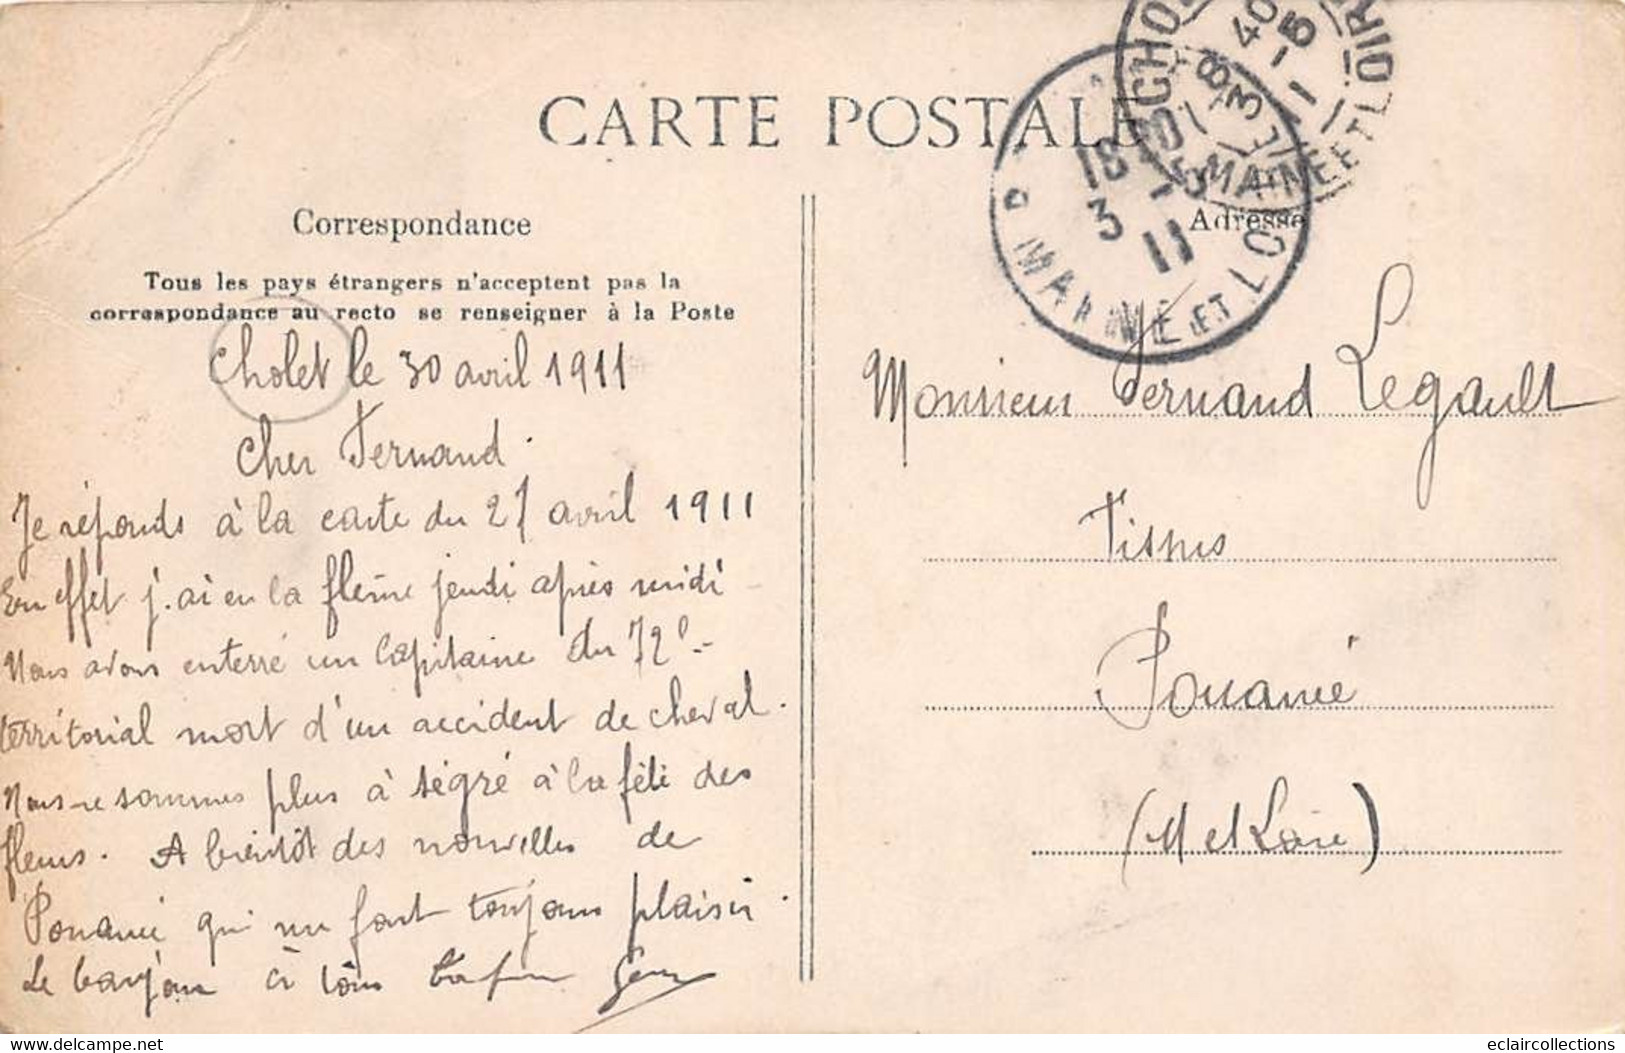 CARTE POSTALE
Correspondance
Tous les pays étrangers n'acceptent pas la
correspondance au recto se renseigner à la Poste
Cholet le 30 avril 1911
Cher Fernand.
Je réponds à la carte du 27 avril 1911
En effet j'ai eu la flême jeudi après midi
Nous avons enterré un Capitaine du 72e
territorial mort d'un accident de cheval.
Nous sommes plus à ségré à la fête des
fleurs. A bientôt des nouvelles de
Pouancé qui me font toujours plaisir.
Le bonjour à tous
Adresse
Monsieur Fernand Legault
Pouancé
(M et Loire)
CHO
8 40
3 -5
11
MAINE ET LOIR
18
3 -5
11
MAINE ET LO
www.delcampe.net
eclaircollections